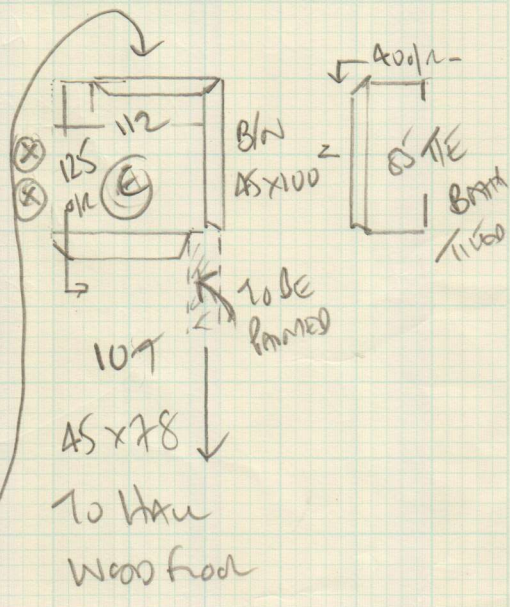 112
125
O/R
E
X
X
B/N
45 X 100
400/R
85 T/E
TILED
TO BE
PAINTED
45 X 78
TO HALL
WOOD FLOOR